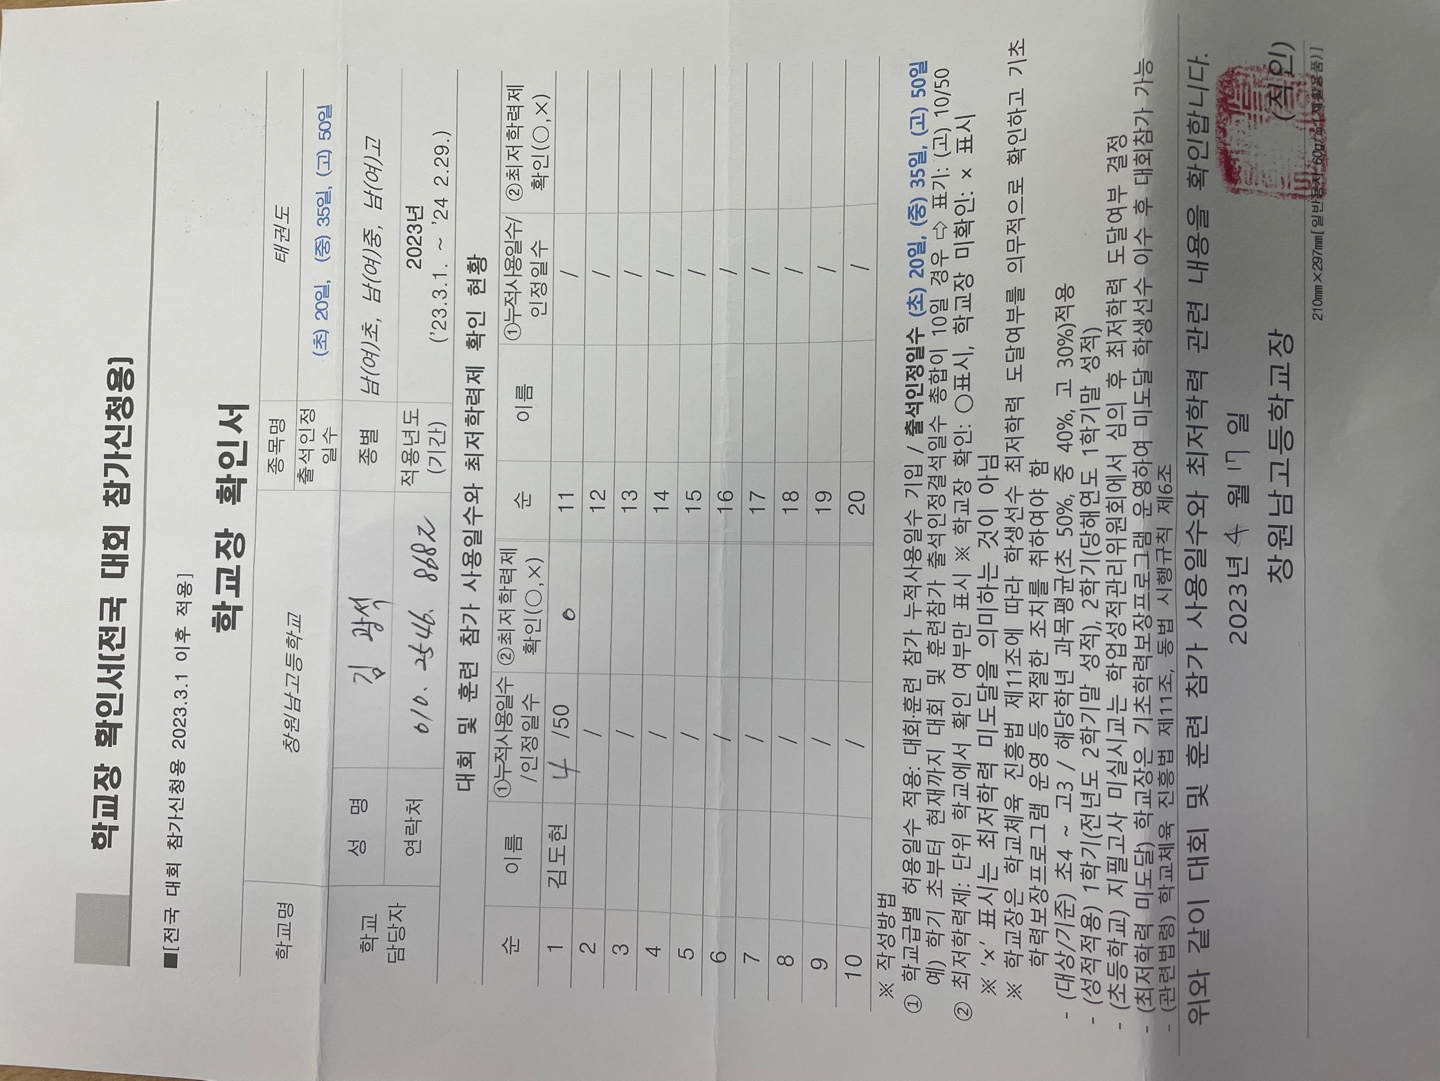 학교장 확인서[전국 대회 참가신청용]
■[전국 대회 참가신청용 2023.3.1 이후 적용]
학교장 확인서
학교명 창원남고등학교 종목명 태권도
출석인정일수 (초) 20일, (중) 35일, (고) 50일
학교 담당자 성 명 김광석 종별 남(여)초, 남(여)중, 남(여)고
연락처 010. 2546. 8682 적용년도 (기간) 2023년 ('23.3.1. ~ '24 2.29.)
대회 및 훈련 참가 사용일수와 최저학력제 확인 현황
순 이름 ①누적사용일수/인정일수 ②최저학력제 확인(○,×) 순 이름 ①누적사용일수/인정일수 ②최저학력제 확인(○,×)
1 김도현 4 /50 o 11 /
2 / 12 /
3 / 13 /
4 / 14 /
5 / 15 /
6 / 16 /
7 / 17 /
8 / 18 /
9 / 19 /
10 / 20 /
※ 작성방법
① 학교급별 허용일수 적용: 대회·훈련 참가 누적사용일수 기입 / 출석인정일수 (초) 20일, (중) 35일, (고) 50일
예) 학기 초부터 현재까지 대회 및 훈련참가 출석인정결석일수 총합이 10일 경우 ⇨ 표기: (고) 10/50
② 최저학력제: 단위 학교에서 확인 여부만 표시 ※ 학교장 확인: ○표시, 학교장 미확인: × 표시
※ '×' 표시는 최저학력 미도달을 의미하는 것이 아님
※ 학교장은 학교체육 진흥법 제11조에 따라 학생선수 최저학력 도달여부를 의무적으로 확인하고 기초
학력보장프로그램 운영 등 적절한 조치를 취하여야 함
- (대상/기준) 초4 ~ 고3 / 해당학년 과목평균(초 50%, 중 40%, 고 30%)적용
- (성적적용) 1학기(전년도 2학기말 성적), 2학기(당해연도 1학기말 성적)
- (초등학교) 지필고사 미실시교는 학업성적관리위원회에서 심의 후 최저학력 도달여부 결정
- (최저학력 미도달) 학교장은 기초학력보장프로그램 운영하여 미도달 학생선수 이수 후 대회참가 가능
- (관련법령) 학교체육 진흥법 제11조, 동법 시행규칙 제6조
위와 같이 대회 및 훈련 참가 사용일수와 최저학력 관련 내용을 확인합니다.
2023년 4 월 17 일
창원남고등학교장 (직인)
210mm×297mm[일반용지 60g/㎡(재활용품)]